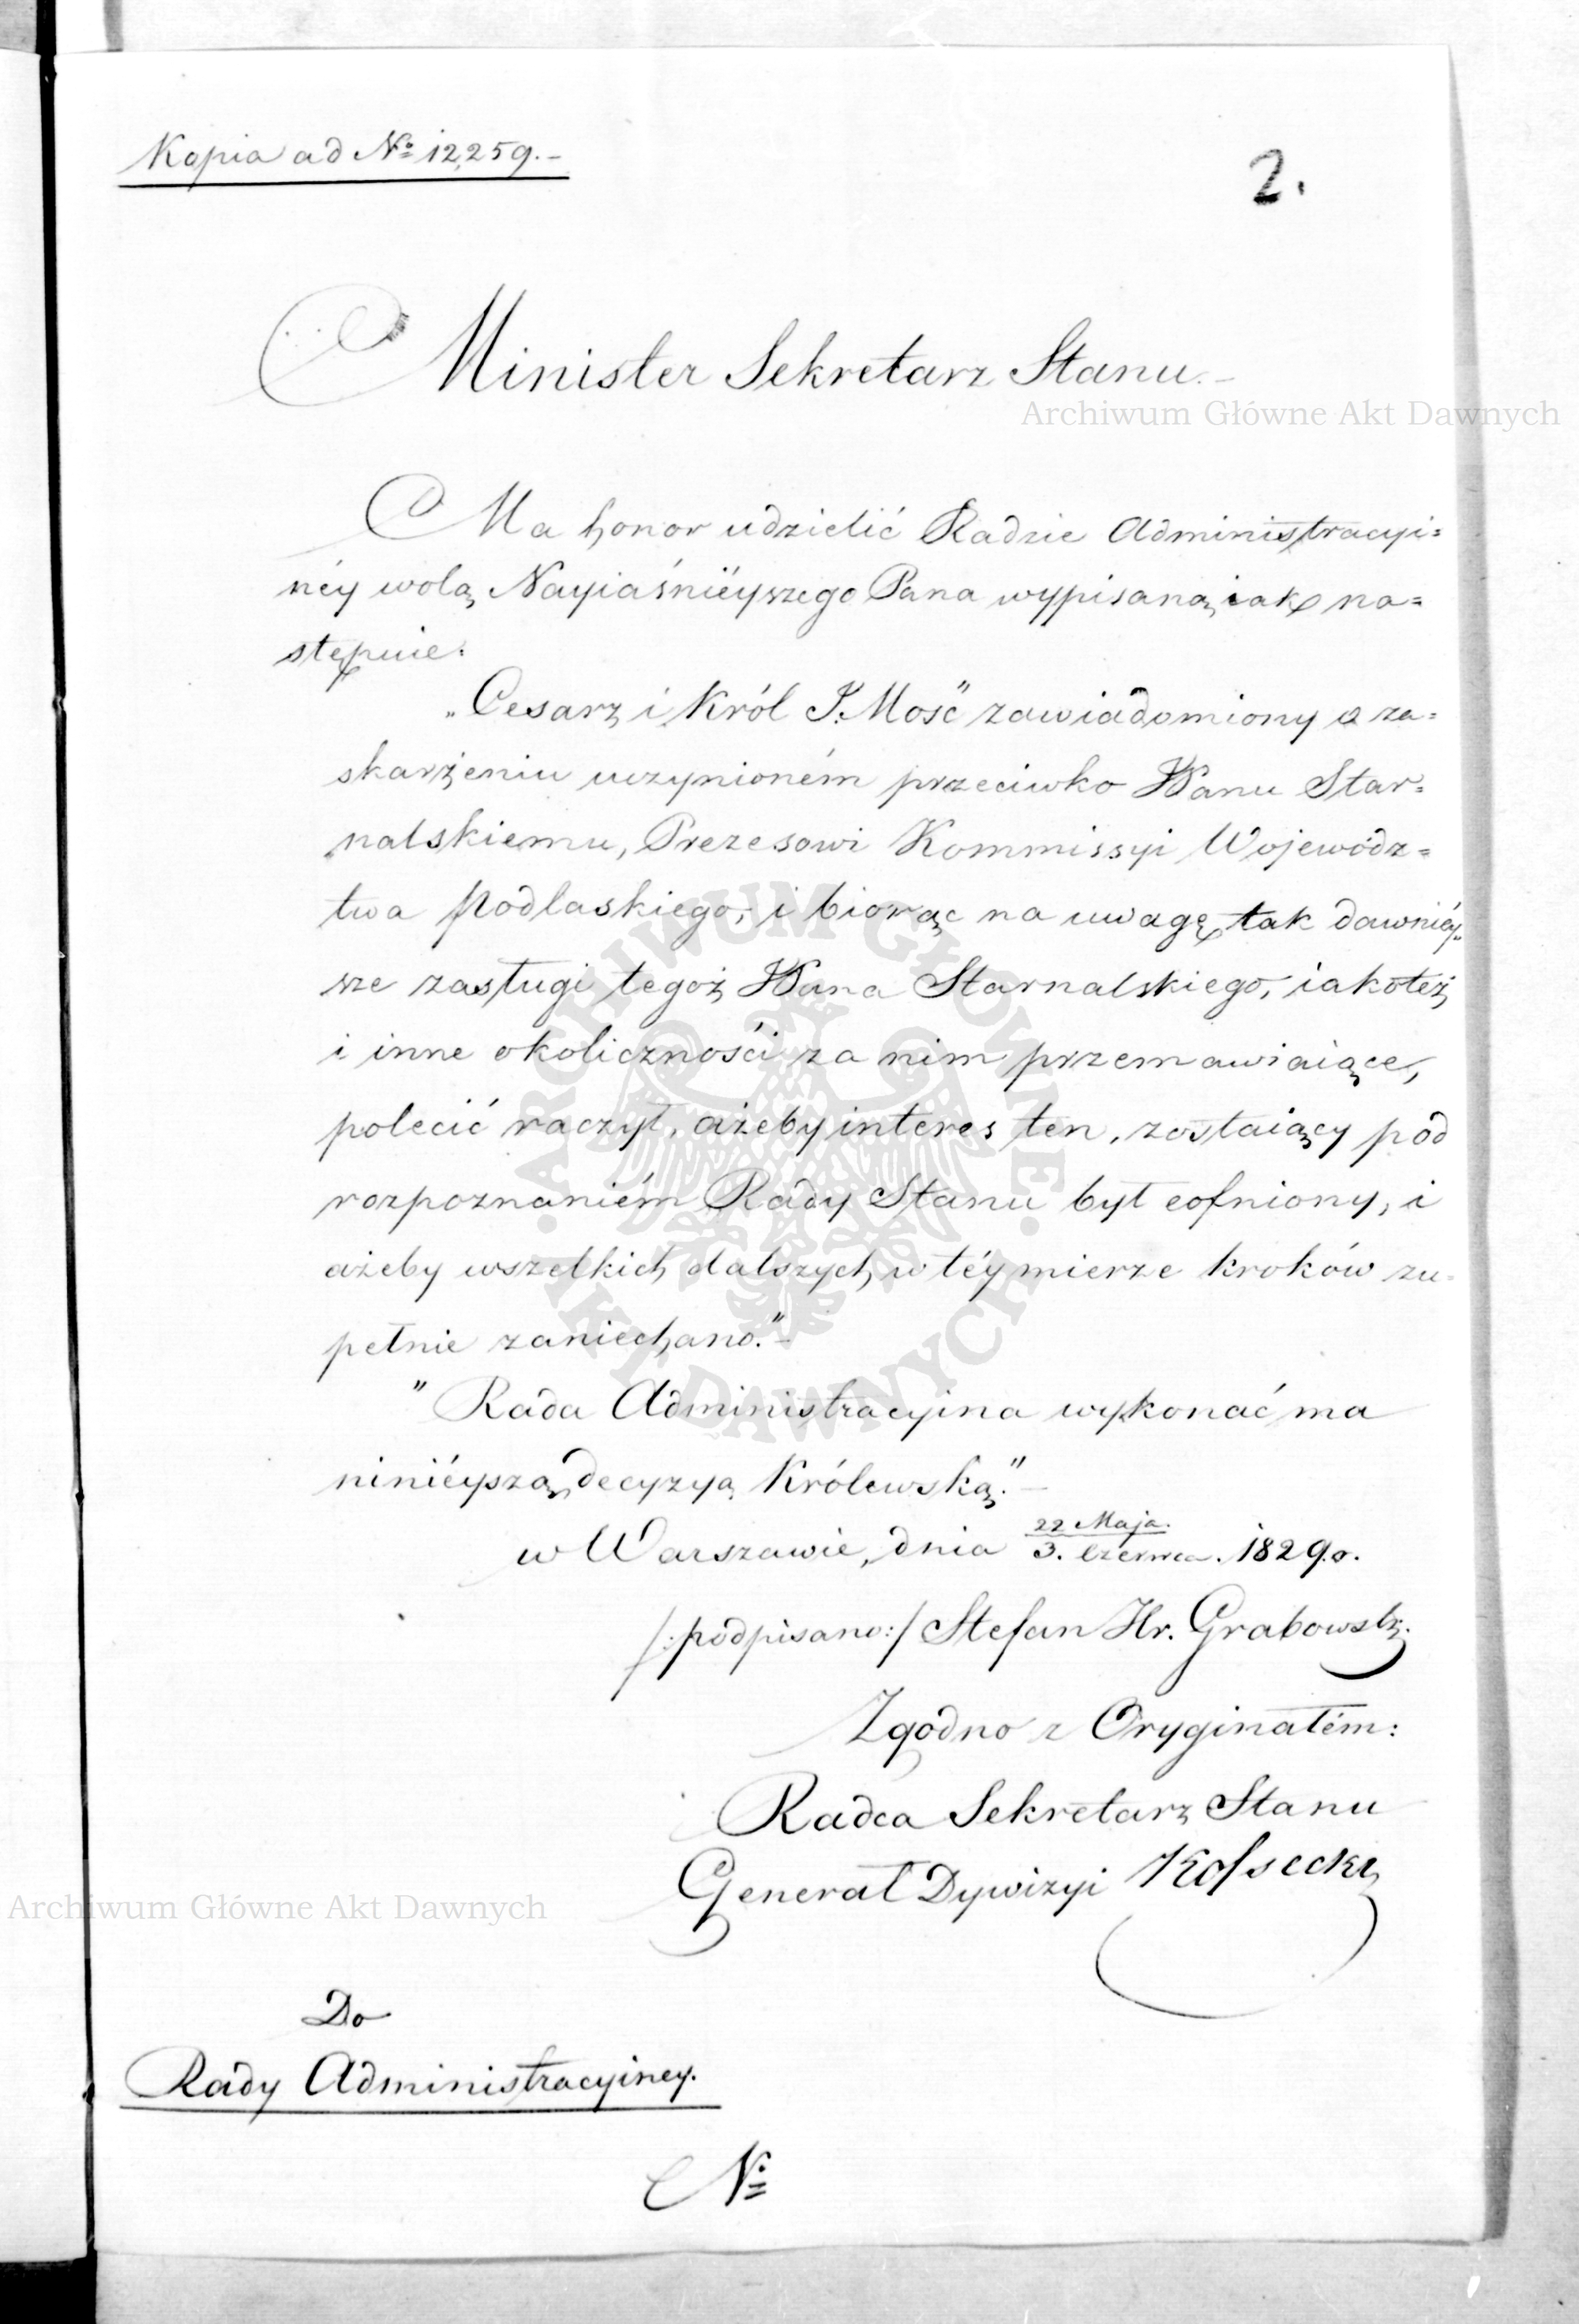 Kopia ad Nº 12,259.-
2.
Minister Sekretarz Stanu.-
Archiwum Główne Akt Dawnych
Ma honor udzielić Radzie Administracyi=
néy wolą Nayiaśniéyszego Pana wypisaną iak na=
stępuie:
"Cesarz i Król J. Mość" zawiadomiony o za=
skarżeniu uczynioném przeciwko JPanu Star=
nalskiemu, Prezesowi Kommissyi Wojewódz=
twa Podlaskiego, i biorąc na uwagę tak dawniéy=
sze zasługi tegoż JPana Starnalskiego, iakoteż
i inne okoliczności za nim przemawiaiące,
polecić raczył, ażeby interes ten, zostaiący pod
rozpoznaniém Rady Stanu był cofniony, i
ażeby wszelkich dalszych w téy mierze kroków zu=
pełnie zaniechano."-
"Rada Administracyina wykonać ma
niniéyszą decyzyą Królewską."-
w Warszawie, dnia 22 Maja./3. Czerwca. 1829.r.
/:podpisano:/ Stefan Hr. Grabowski.
Zgodno z Oryginałém:
Radca Sekretarz Stanu
Generał Dywizyi Kossecki
Archiwum Główne Akt Dawnych
Do
Rady Administracyiney.
Nº
ARCHIWUM GŁÓWNE AKT DAWNYCH